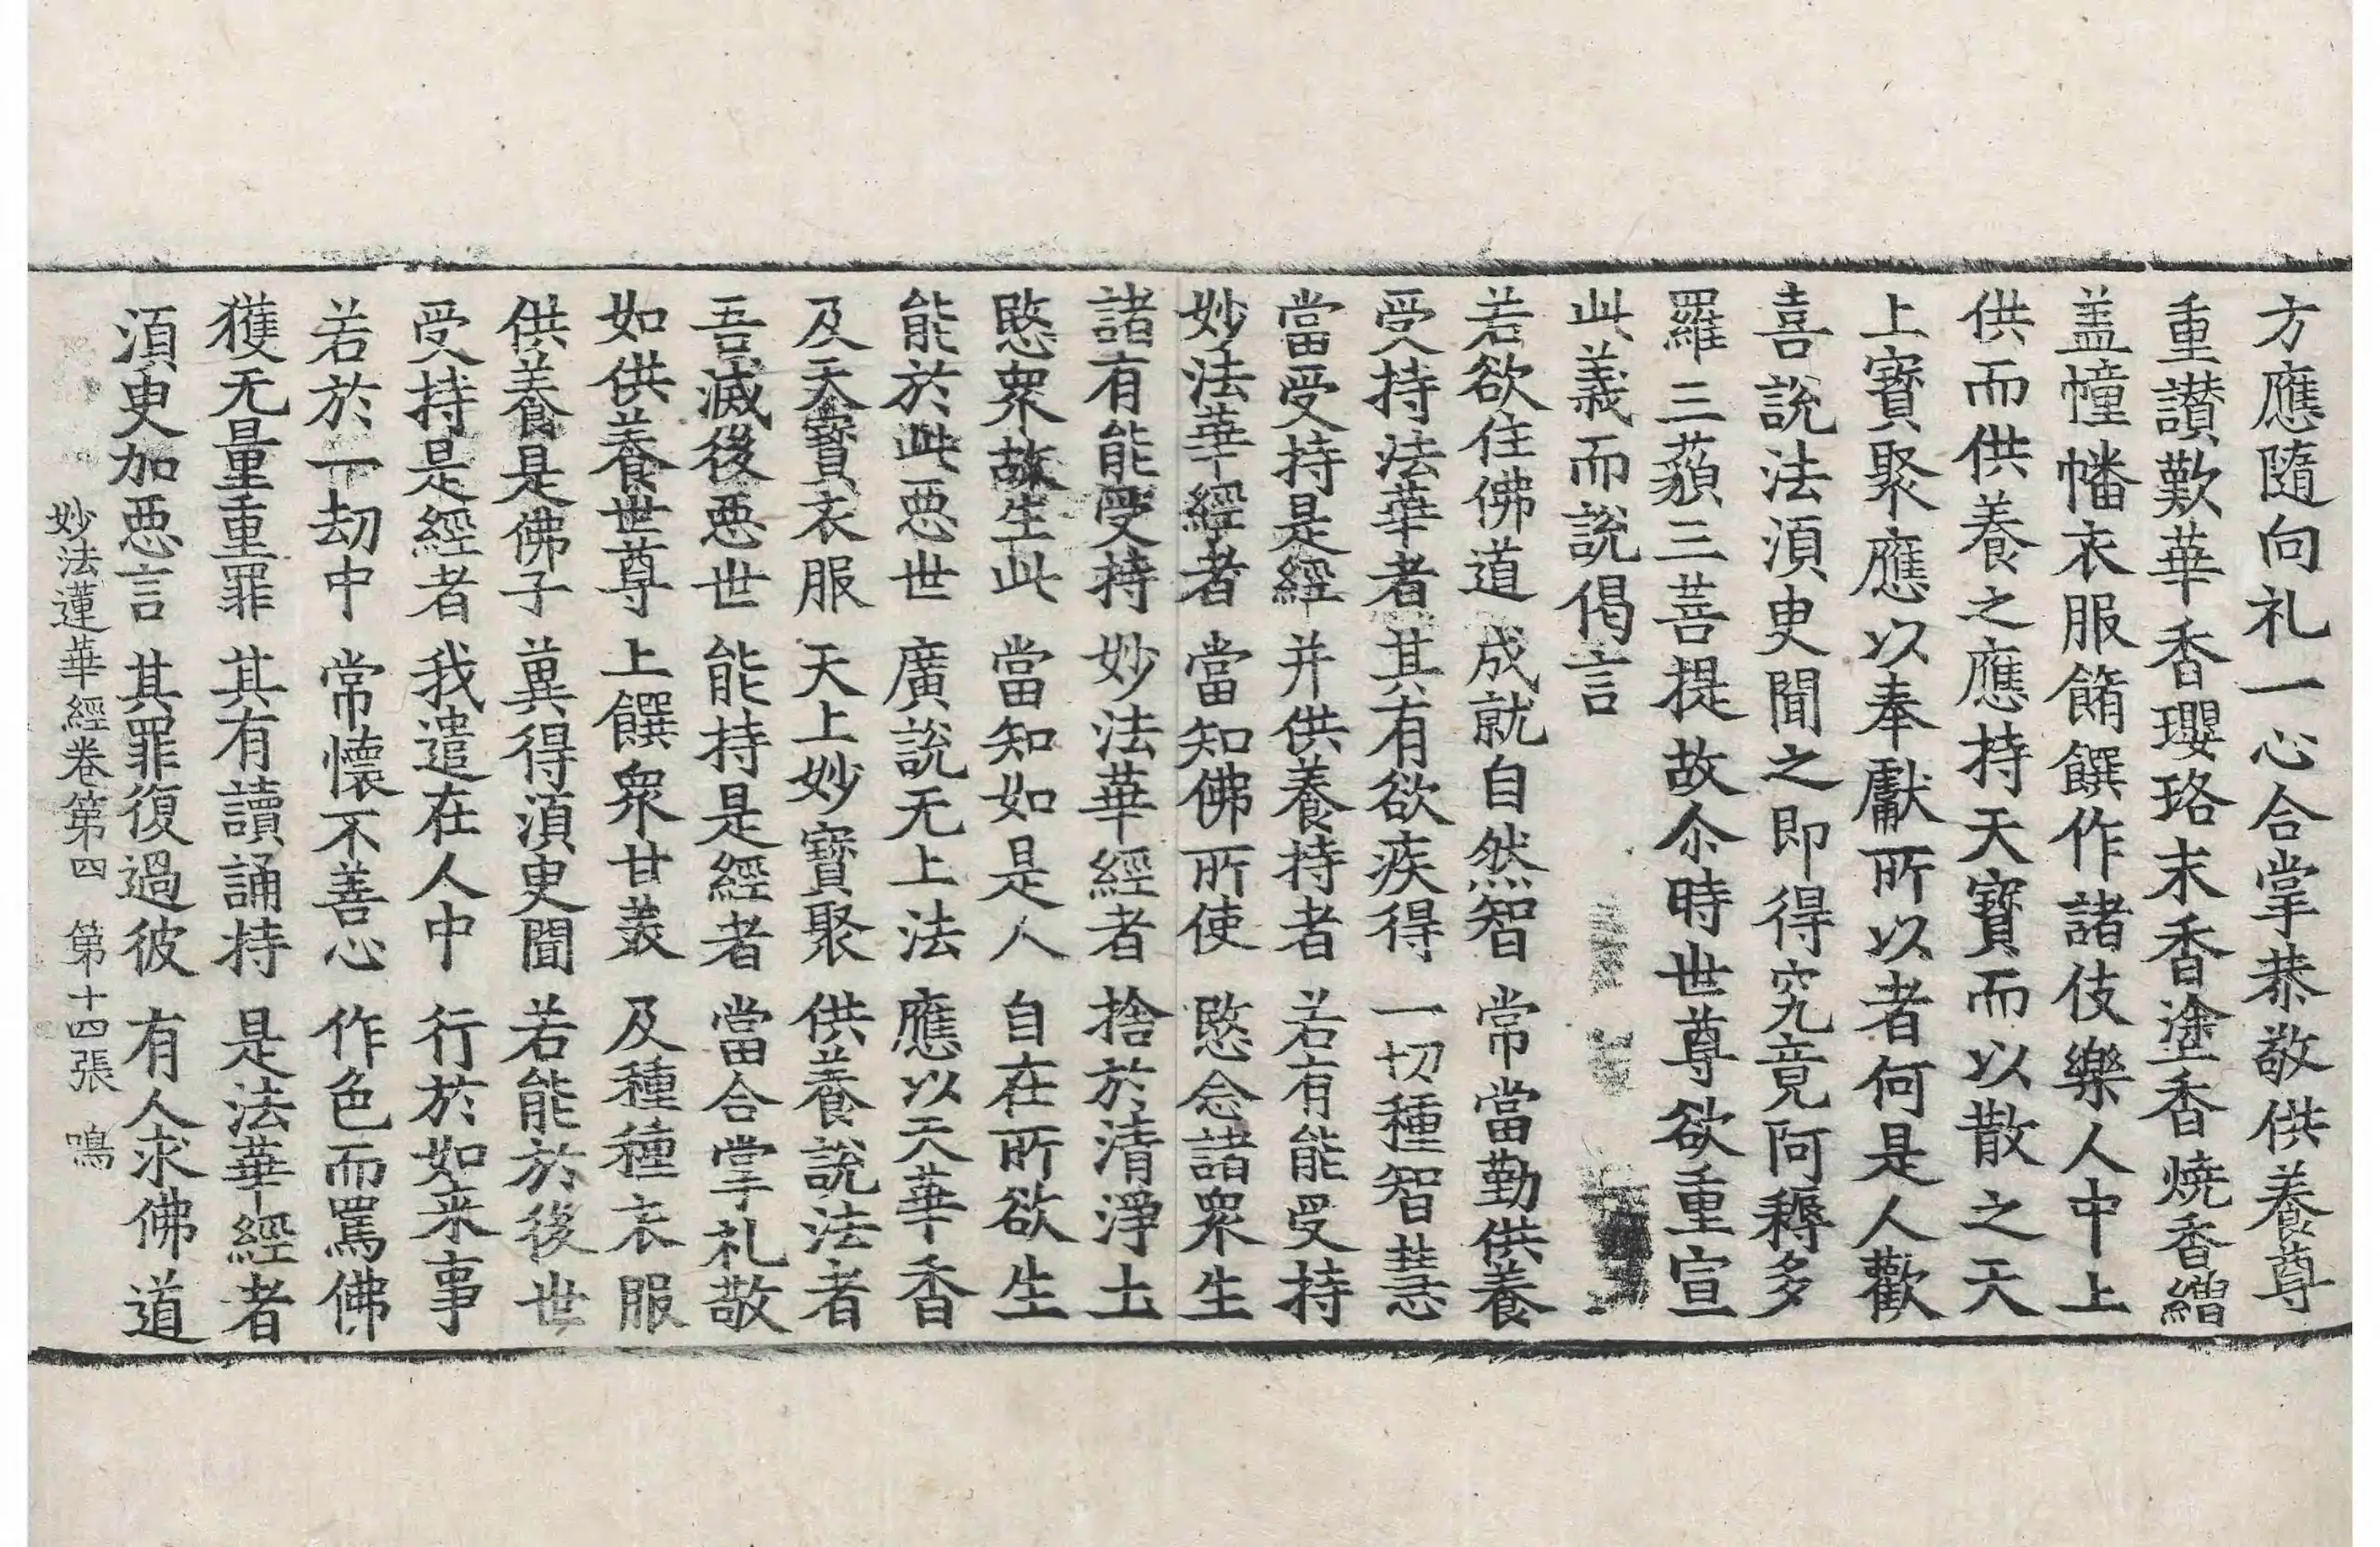 方應隨向礼一心合掌恭敬供養尊
重讃歎華香瓔珞末香塗香燒香繒
盖幢幡衣服餚饌作諸伎樂人中上
供而供養之應持天寶而以散之天
上寶聚應以奉獻所以者何是人歡
喜說法湏臾聞之即得究竟阿耨多
羅三藐三菩提故尒時世尊欲重宣
此義而說偈言
若欲住佛道　成就自然智　常當勤供養
受持法華者　其有欲疾得　一切種智慧
當受持是經　并供養持者　若有能受持
妙法華經者　當知佛所使　愍念諸衆生
諸有能受持　妙法華經者　捨於清淨土
愍衆故生此　當知如是人　自在所欲生
能於此惡世　廣說无上法　應以天華香
及天寶衣服　天上妙寶聚　供養說法者
吾滅後惡世　能持是經者　當合掌礼敬
如供養世尊　上饌衆甘美　及種種衣服
供養是佛子　冀得湏臾聞　若能於後世
受持是經者　我遣在人中　行於如来事
若於一劫中　常懷不善心　作色而罵佛
獲无量重罪　其有讀誦持　是法華經者
湏臾加惡言　其罪復過彼　有人求佛道
妙法蓮華經卷第四　第十四張　鳴